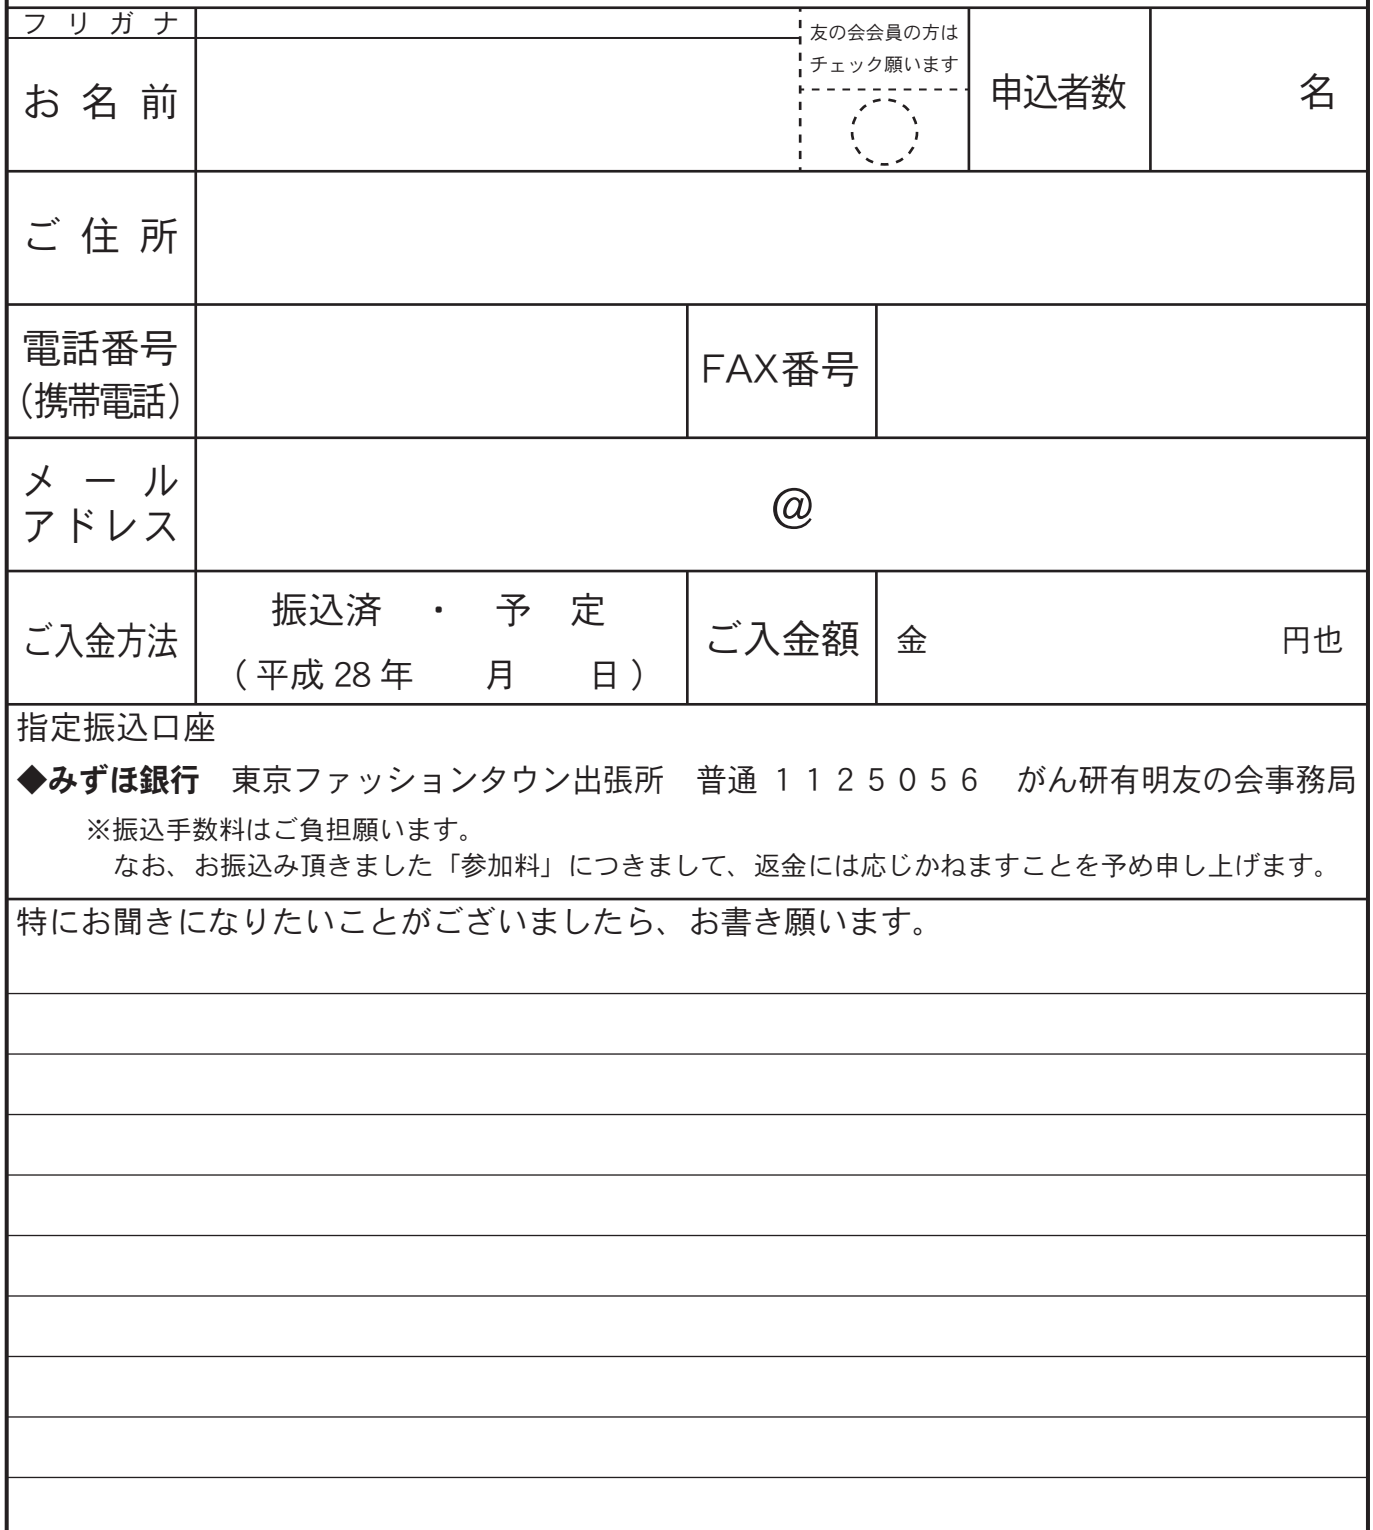 フリガナ
お名前
友の会会員の方は
チェック願います
申込者数
名
ご住所
電話番号
（携帯電話）
FAX番号
メール
アドレス
@
ご入金方法
振込済　・　予　定
（平成 28 年　　月　　日）
ご入金額
金　　円也
指定振込口座
◆みずほ銀行　東京ファッションタウン出張所　普通 １１２５０５６　がん研有明友の会事務局
※振込手数料はご負担願います。
なお、お振込み頂きました「参加料」につきまして、返金には応じかねますことを予め申し上げます。
特にお聞きになりたいことがございましたら、お書き願います。